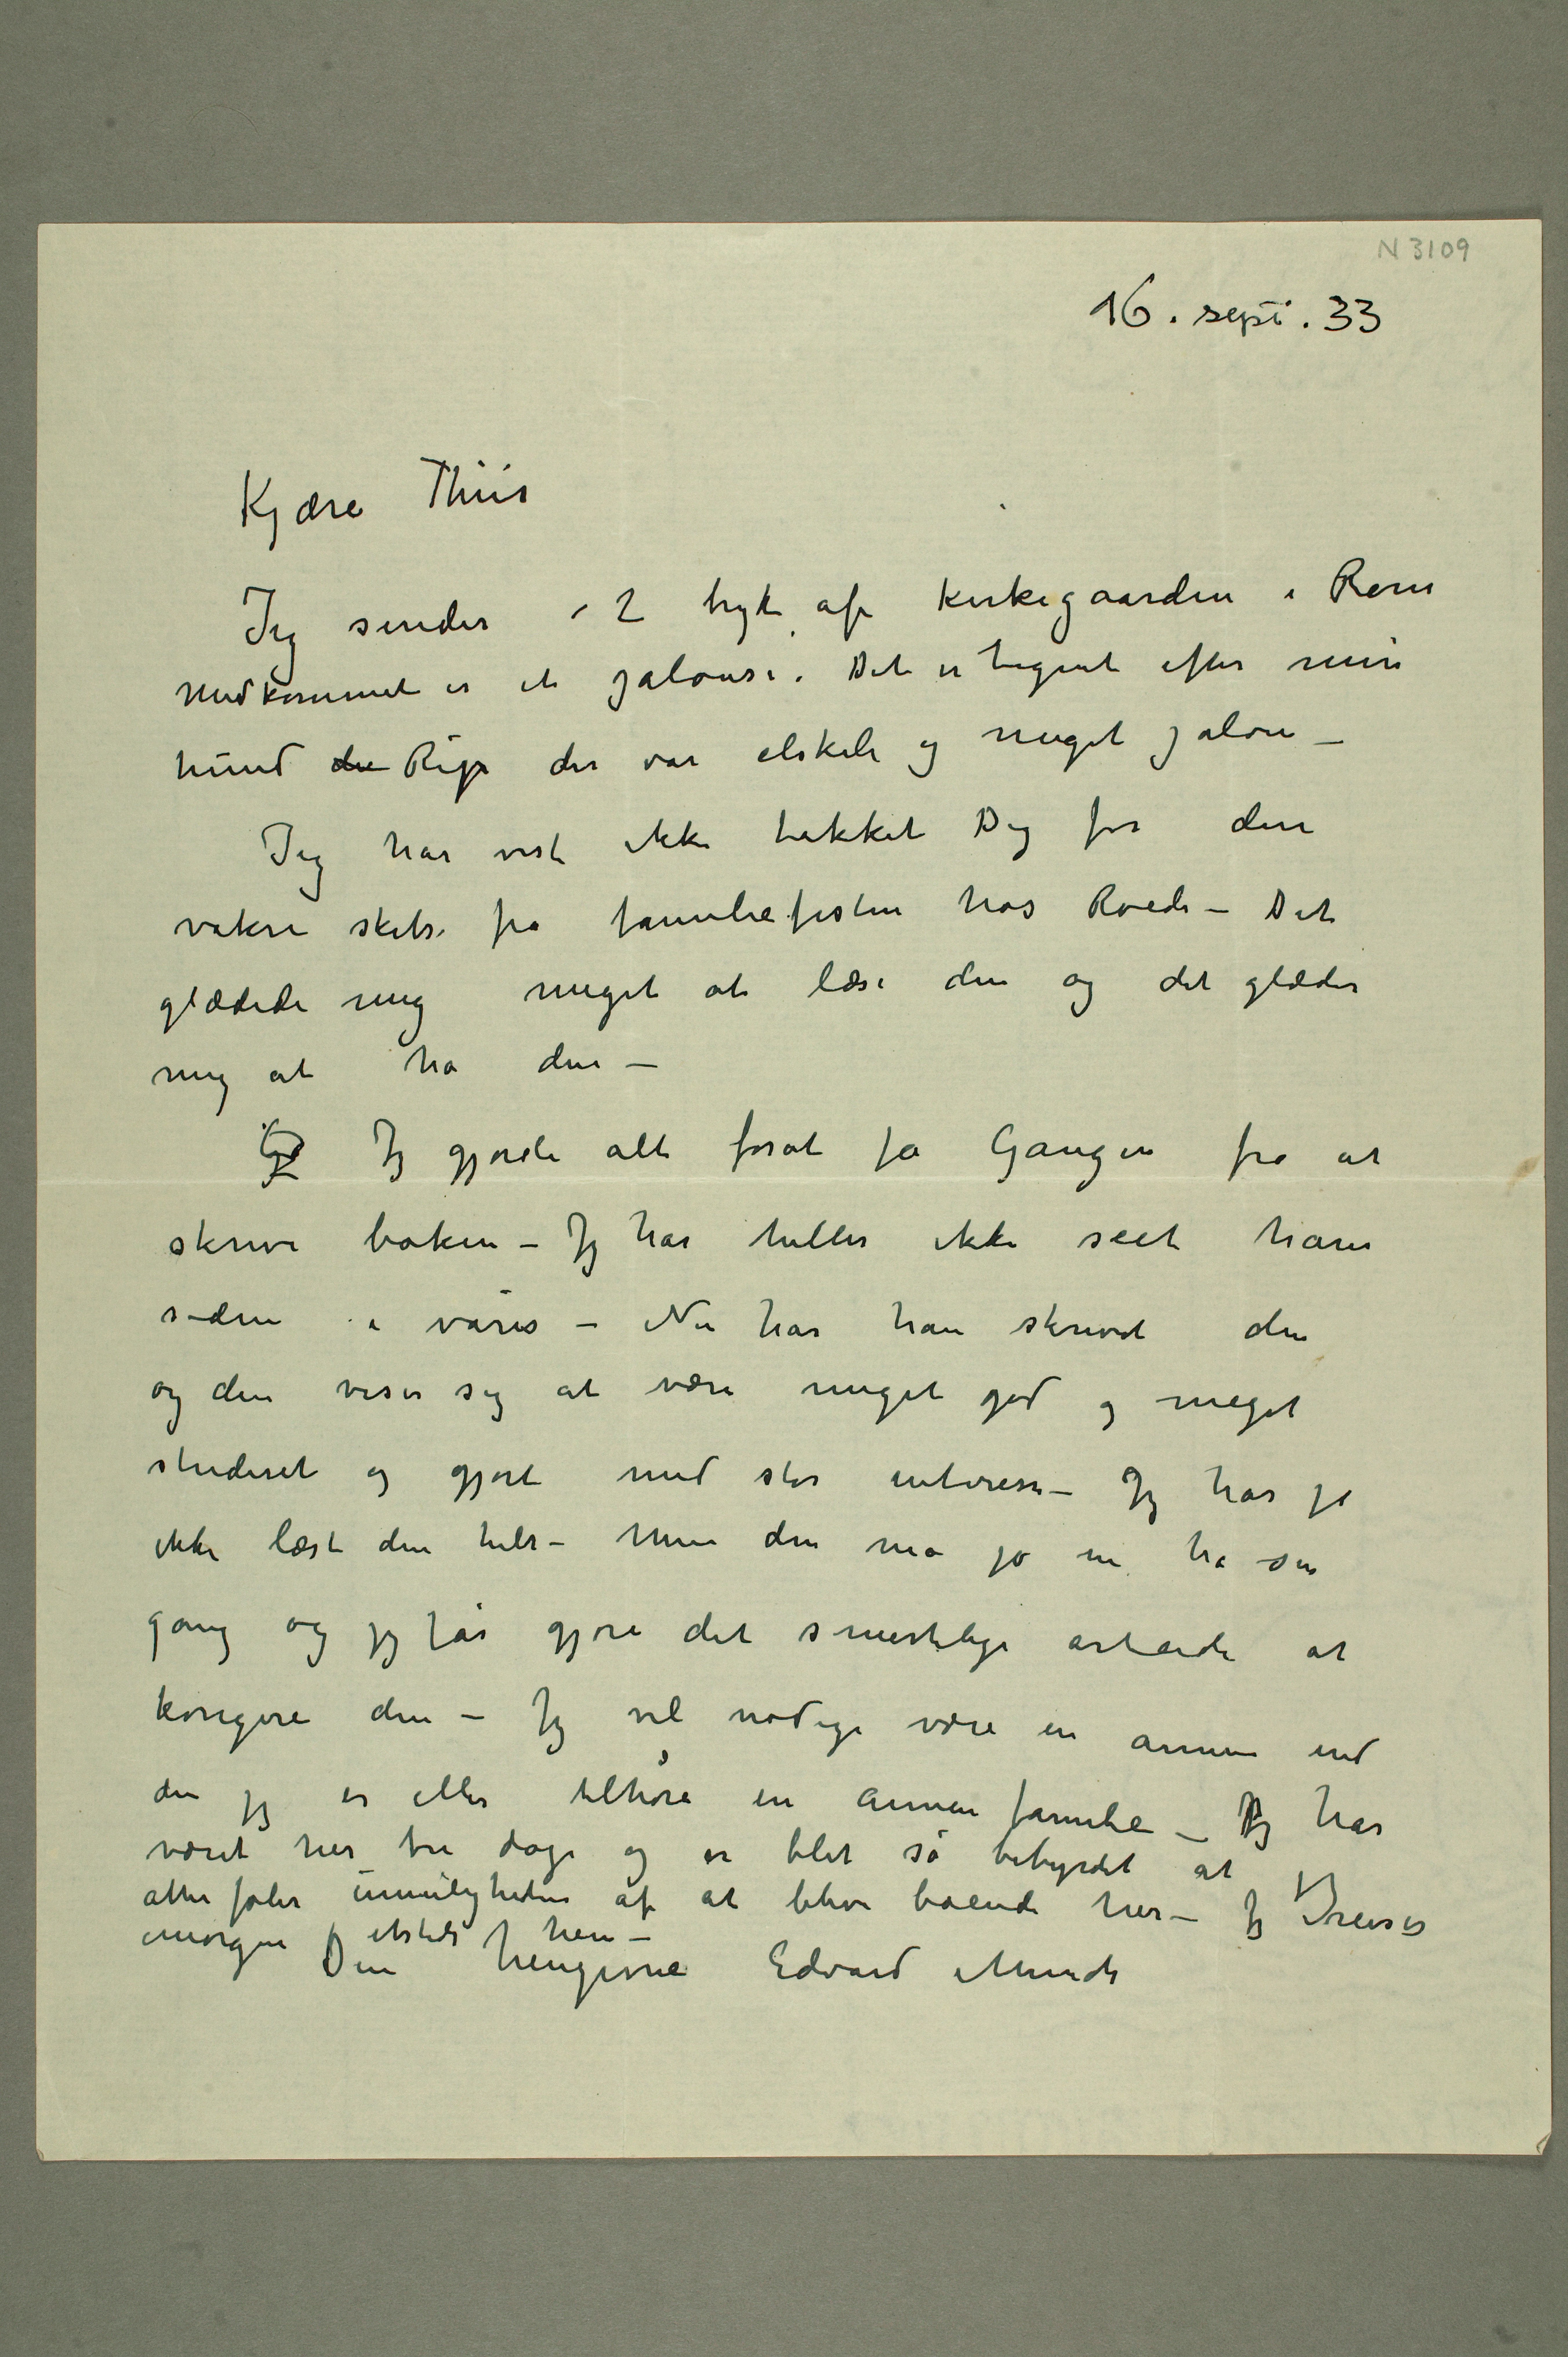 N 3109
16. sept. 33
Kjære Thiis
Jeg sender 2 tryk af Kirkegaarden i Rom
Medkommet er et jalousi. Det er tegnet efter min
hund Rip der var elskelig og meget jalou –
Jeg har vist ikke takket Dig for den
vakre skitse fra familiefesten hos Roede – Det
glædede mig meget at læse den og det glæder
mig at ha den –
Jeg gjorde alt forat få Gaugen fra at
skrive boken – Jeg har heller ikke seet ham
siden i våres – Nu har han skrevet den
og den viser sig at være meget god og meget
studeret og gjort med stor interesse – Jeg har jo
ikke læst den hele – Men den må jo nu ha sin
gang og jeg får gjøre det smertelige arbeide at
korigere den – Jeg vil nødig være en annen end
den jeg er eller tilhøre en annen familie – Jeg har
været her tre dage og er blet så bebyrdet at jeg
atter føler umuligheden af at blive boende her – Jeg reiser
imorgen etsteds hen –
Din hengivne Edvard Munch